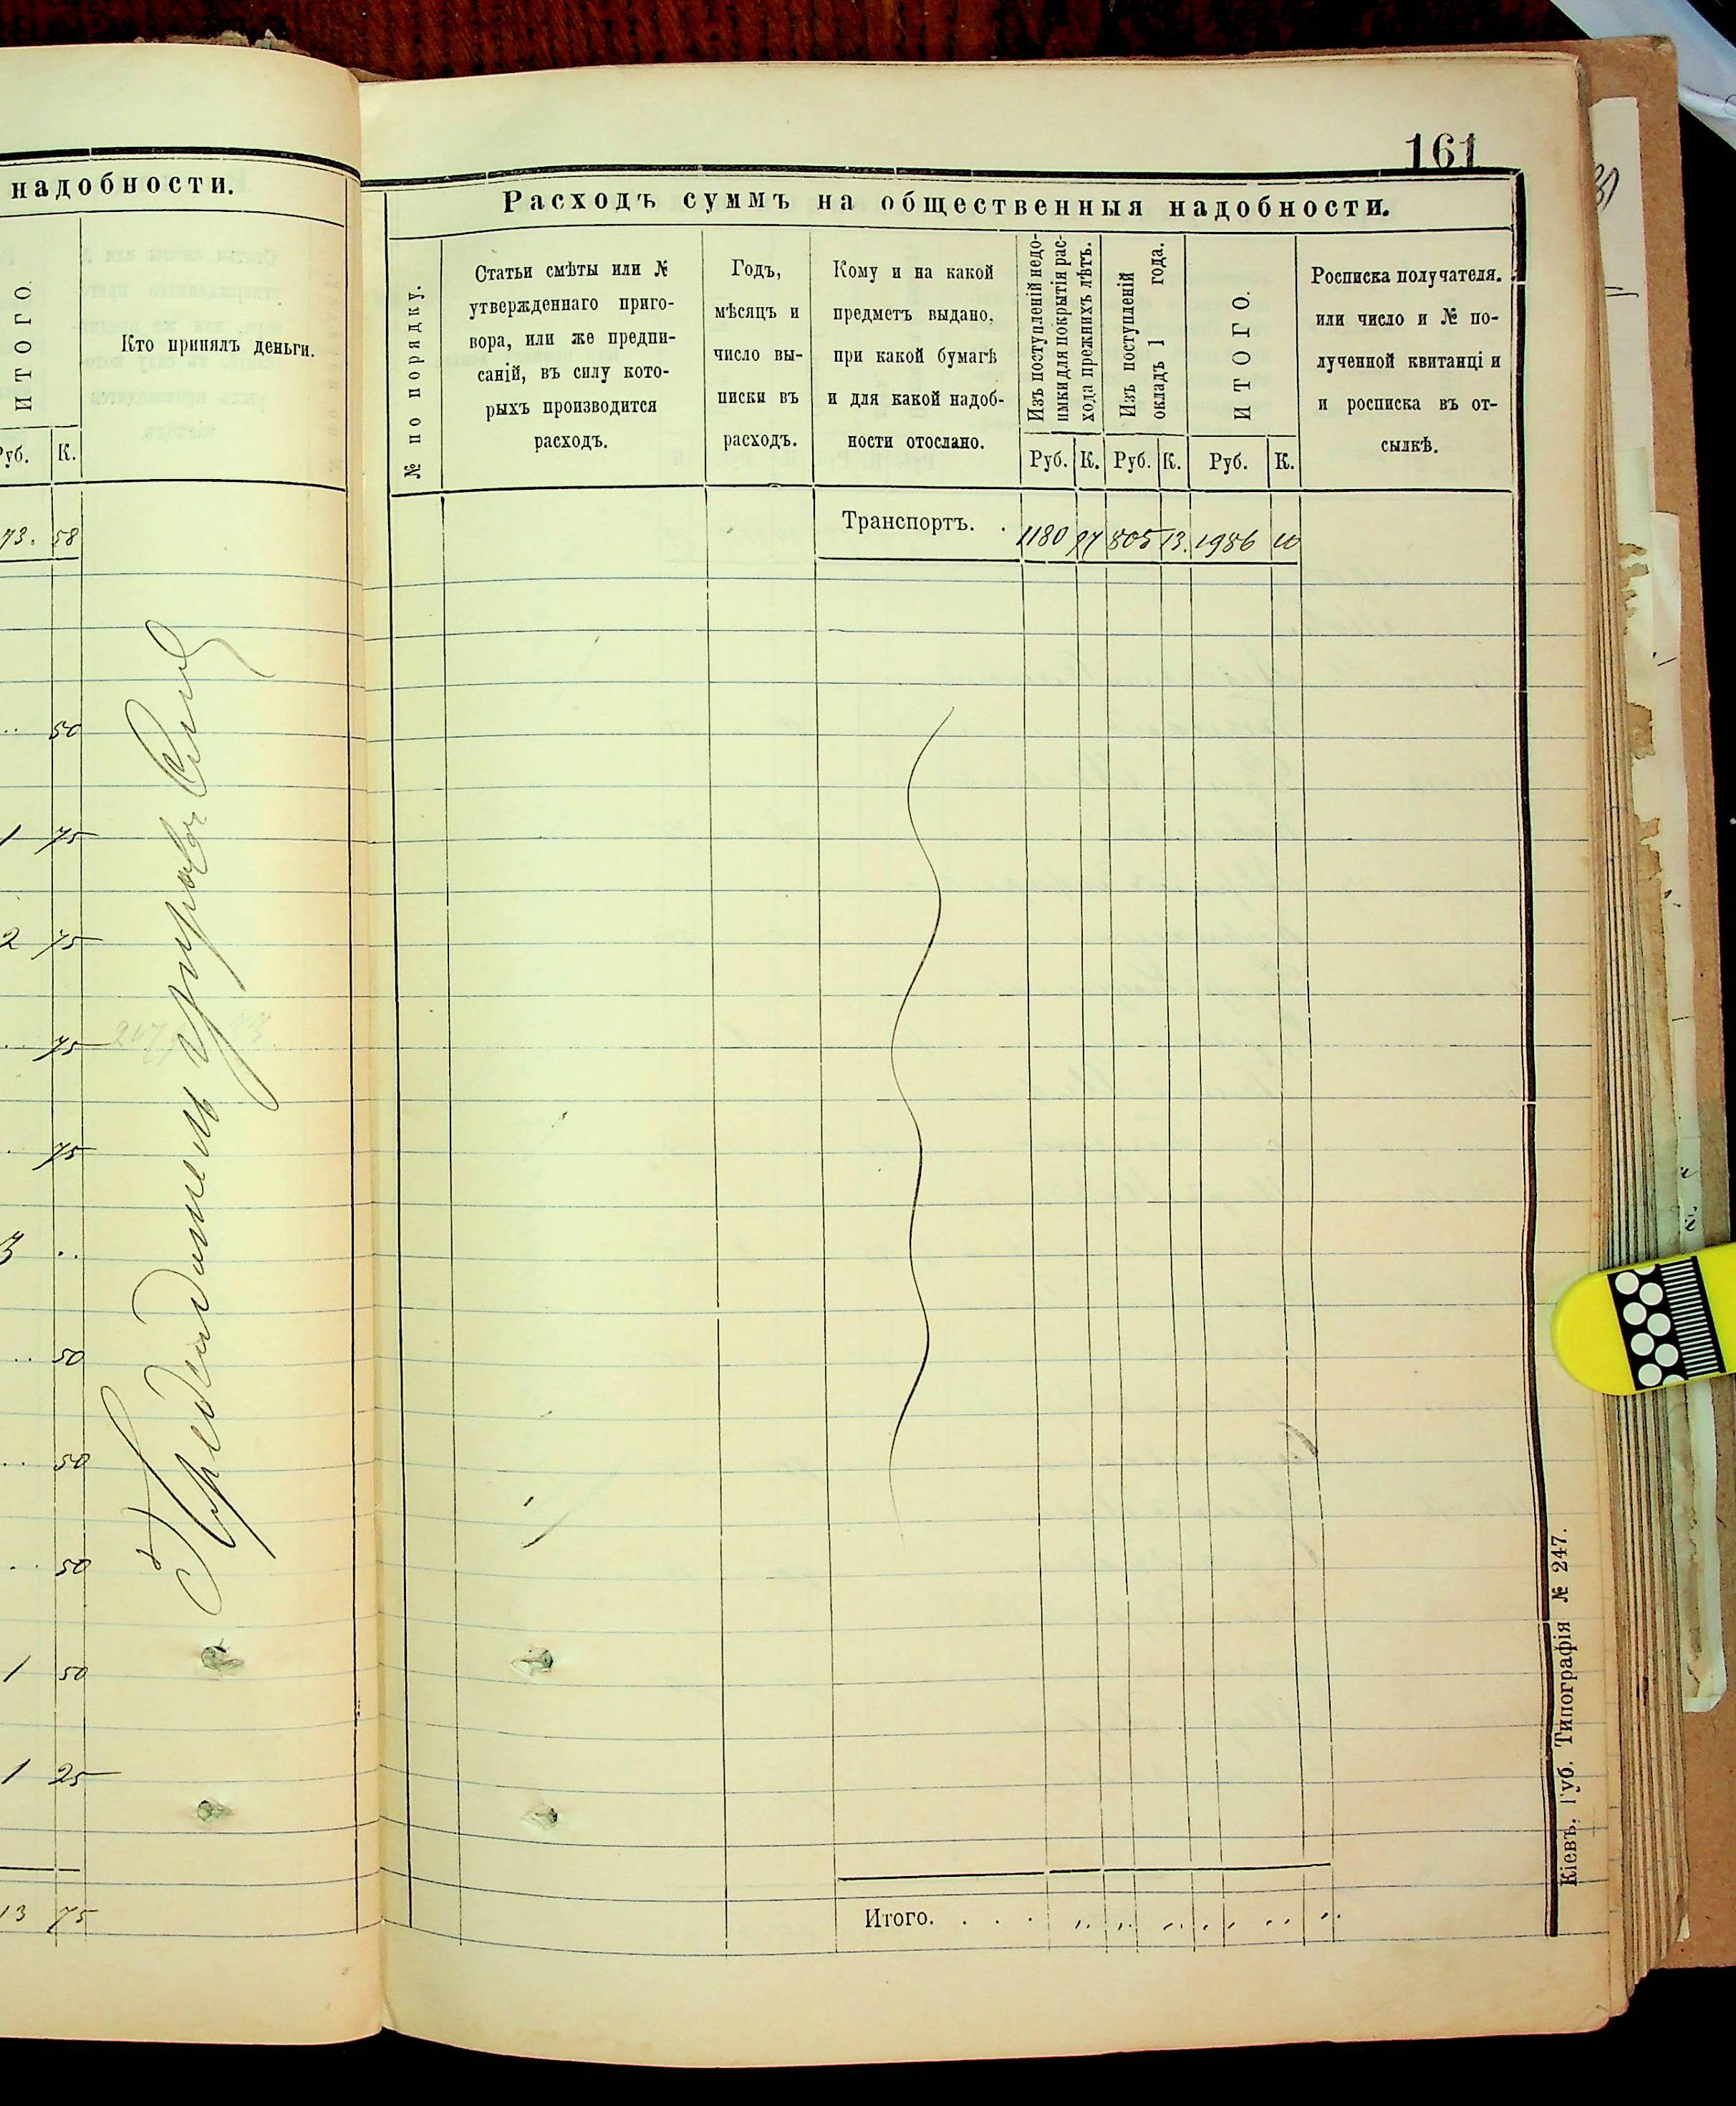 надобности.
ИТОГО.
Кто принялъ деньги.
Руб. К.
73. 58
50
1 75
2 75
75
75
3 ..
50
50
50
1 50
1 25
13 75
161
Расходъ суммъ на общественныя надобности.
№ по порядку.
Статьи смѣты или №
утвержденнаго приго-
вора, или же предпи-
саній, въ силу кото-
рыхъ производится
расходъ.
Годъ,
мѣсяцъ и
число вы-
писки въ
расходъ.
Кому и на какой
предметъ выдано,
при какой бумагѣ
и для какой надоб-
ности отослано.
Изъ поступленій недо-
имки для покрытія рас-
хода прежнихъ лѣтъ.
Изъ поступленій
окладъ 1 года.
ИТОГО.
Росписка получателя.
или число и № по-
лученной квитанці и
и росписка въ от-
сылкѣ.
Руб. К. Руб. К. Руб. К.
Транспортъ. . 1180 97 805 13. 1986 10
Итого. . . .
Кіевъ. Губ. Типографія № 247.